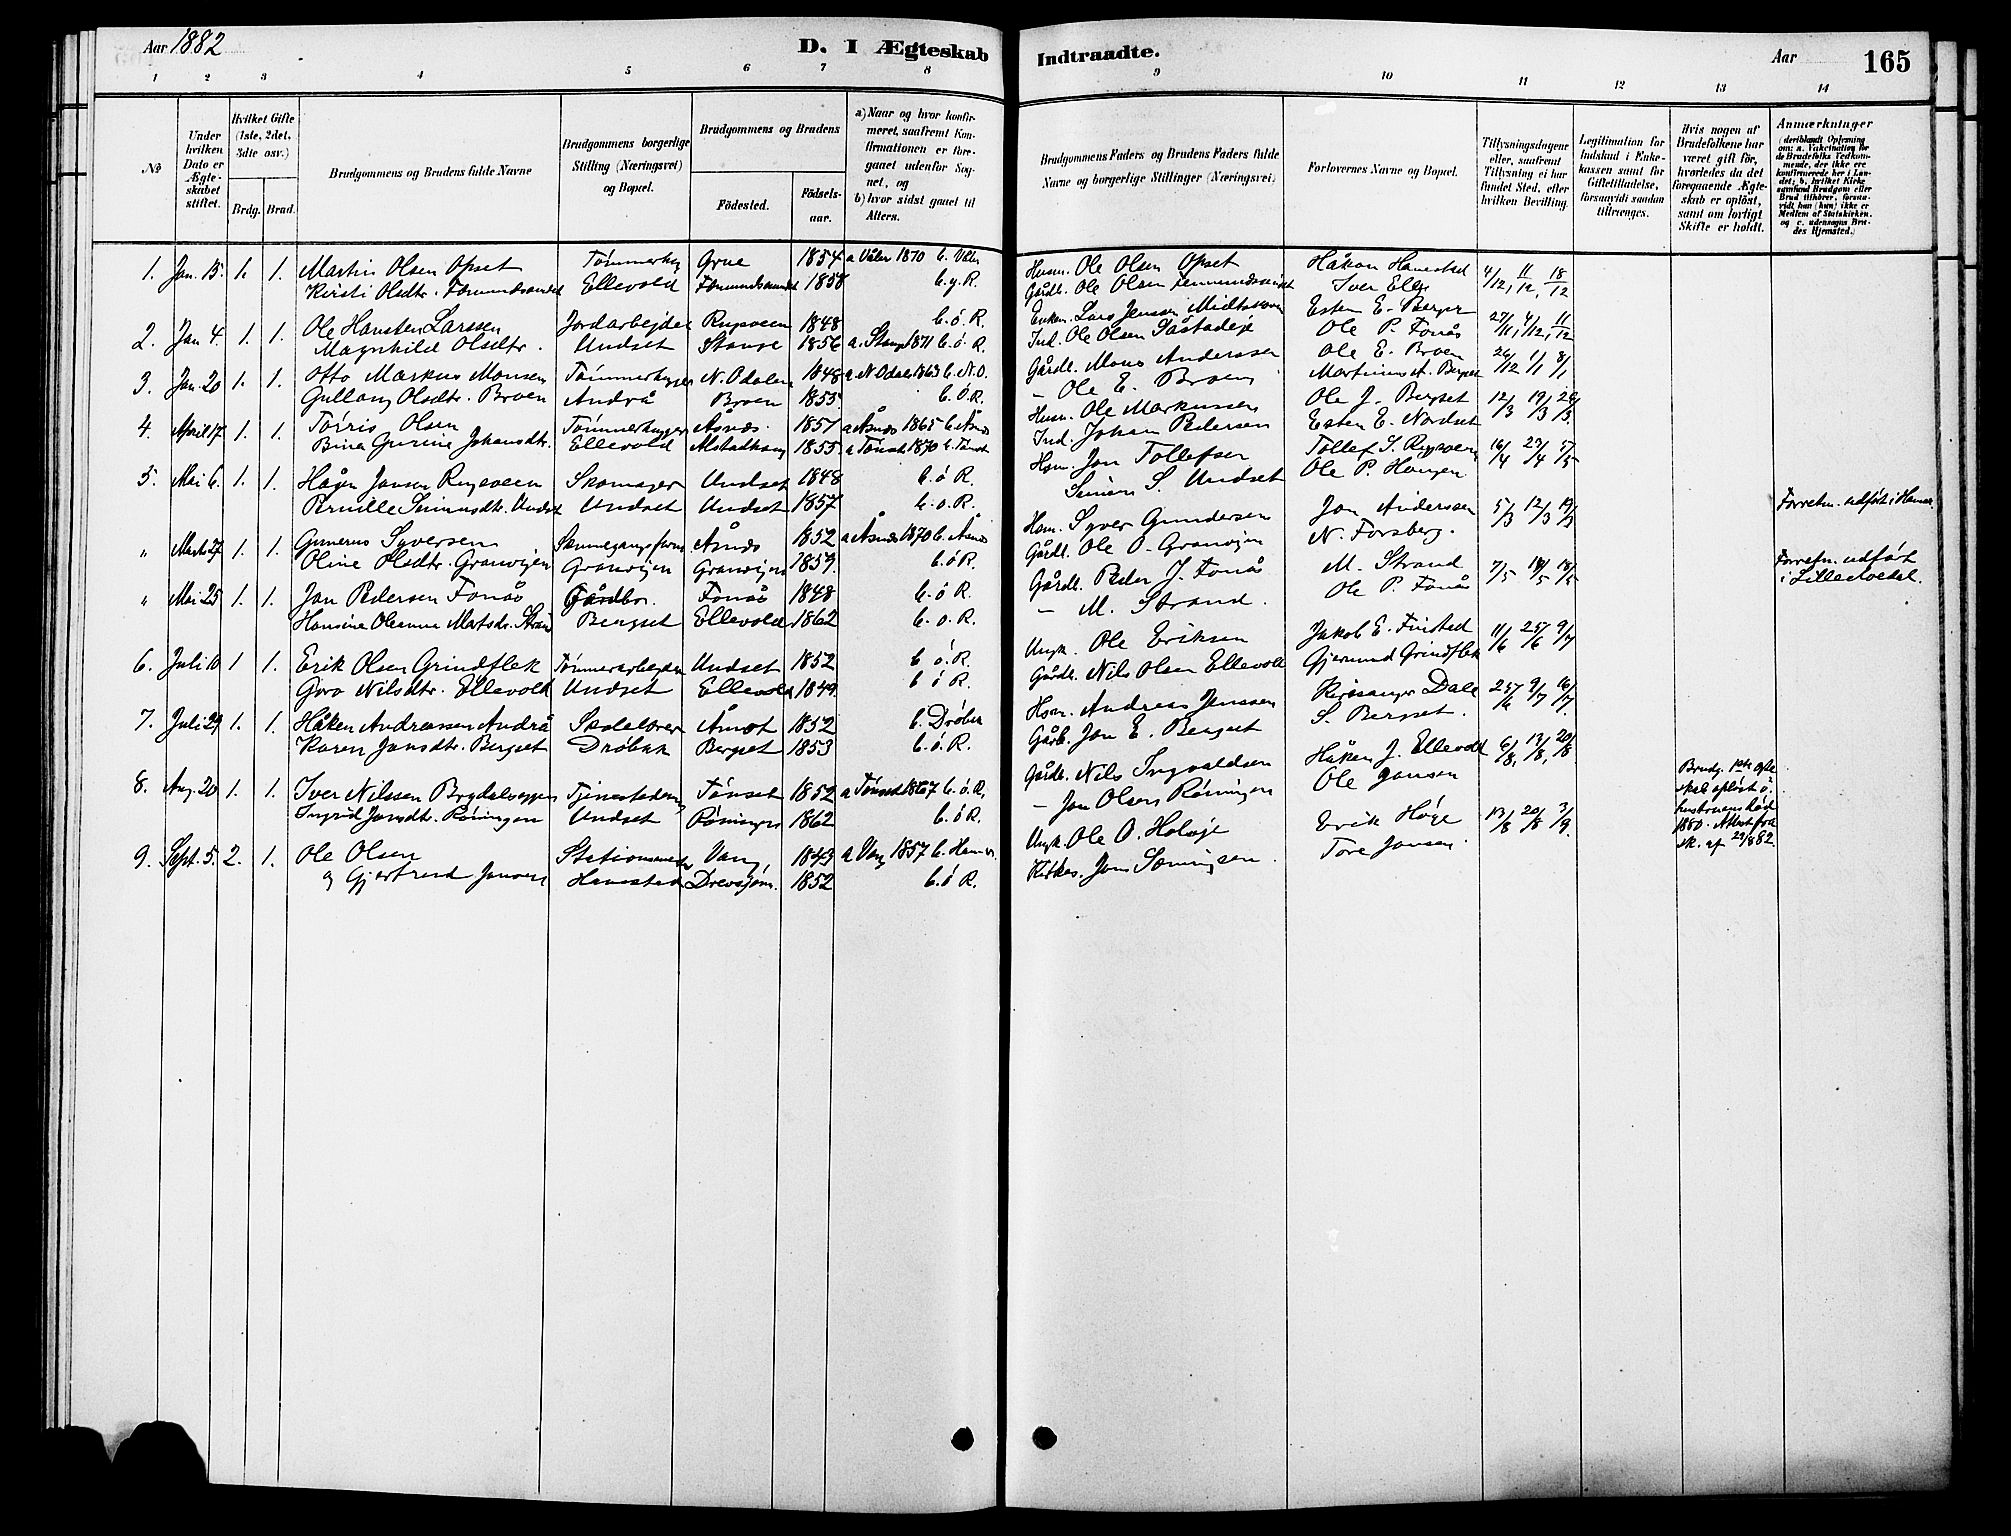 Aar 1882
D. I Ægteskab
Indtraadte.
Aar
165
1 2 3 4 5 6 7 8
9 10 11 12 13 14
No
Under hvilken Dato er Ægteskabet stiftet.
Hvilket Gifte (1ste, 2det, 3die osv.)
Brdg. Brud.
Brudgommens og Brudens fulde Navne
Brudgommens borgerlige Stilling (Næringsvei) og Bopæl.
Brudgommens og Brudens
Fødested.
Fødselsaar.
a) Naar og hvor konfirmeret, saafremt Konfirmationen er foregaaet udenfor Sognet, og
b) hvor sidst gaaet til Alters.
Brudgommens Faders og Brudens Faders fulde Navne og borgerlige Stillinger (Næringsvei)
Forlovernes Navne og Bopæl.
Tillysningsdagene eller, saafremt Tillysning ei har fundet Sted, efter hvilken Bevilling.
Legitimation for Indskud i Enkekassen samt for Giftetilladelse, forsaavidt saadan tiltrænges.
Hvis nogen af Brudefolkene har været gift før, hvorledes da det foregaaende Ægteskab er opløst, samt om lovligt Skifte er holdt.
Anmærkninger (deriblandt Oplysning om: a. Vakcination for de Brudefolks Vedkommende, der ikke ere konfirmerede her i Landet; b. hvilket Kirkesamfund Brudgom eller Brud tilhører, forsaavidt han (hun) ikke er Medlem af Statskirken, og c. udensogns Brudes Hjemsted.)
1. Jan. 15. 1. 1. Martin Olsen Opset Tømmerhug Grue 1854 a Våler 1870 b. Våler Husm. Ole Olsen Opset Håkon Hanestad 4/12, 11/12, 18/12
Kirsti Olsdtr. Fæmundsundet Ellevold Fæmundsundet 1858 b. y. R. Gårdb. Ole Olsen Iver Elle
2. Jan 4. 1. 1. Ole Hansten Larssen Jordarbejder Rugsveen 1848 b. ö. R. Lars Jenssen Midtskoven Esten E. Berger 27/11, 4/12, 11/12
Magnhild Olsdtr. Undset Stange 1856 a. Stange 1871 b. ö. R. Ind. Ole Olsen Såstadeje Ole P. Fonås
3. Jan. 20 1. 1. Otto Markus Monsen Tømmerhugger N. Odalen 1848 a N. Odalen 1863 b. N. O. Gårdb. Mons Anderssen Ole E. Broen 26/12 1/1 8/1
Gullaug Olsdtr. Broen Andrå Broen 1855 b. Ö. R. – Ole E. Broen Martinus A. Bergset
4. April 17 1. 1. Tørris Olsen Tømmerhugger Åsnæs. 1851 a Åsnæs 1865 b. Åsnæs Husm. Ole Markussen Ole J. Bergset 12/3 19/3 26/3.
Bina Gurine Johansdtr. Ellevold Alstadhaug 1855 a Tønset 1870 b. Tønset Ind. Johan Pedersen Esten E. Nordset
5. Mai 6. 1. 1. Hågen Jonsen Rugsveen Skomager Undset 1848 b. ö R. Hsm. Jon Tollefsen Tollef S. Rugsveen 16/4 23/4 5/5
Pernille Simensdtr. Undset Undset Undset 1857 b. ö. R. Simen S. Undset Ole P. Haugen
" Marts 27 1. 1. Gunerus Syversen Åsnæs 1852 a Åsnæs 1870 b. Åsnæs Hsm. Syver Gundersen Jon Anderssen 5/3 12/3 19/3 Forretn. udført i Hamar
Oline Olsdtr. Granvigen Granvigen Granvigen 1859. b. ö R. Gårdb. Ole O. Granvigen N. Forsberg.
" Mai 25 1. 1. Jon Pedersen Fonås Gårdbr. Fonås 1848 b. ö R. Gårdb. Peder J. Fonås M. Strand 7/5 14/5 18/5 Forretn. udført i Lilleelvedal.
Hansine Oleanna Matsdr. Strand Bergset Ellevold 1862 b. ö. R. – M. Strand. Ole P. Fonås
6. Juli 10 1 1. Erik Olsen Grindflek Tømmerarbejder Undset 1852 b. ö. R. Ungk. Ole Eriksen Jakob E. Finstad 11/6 25/6 9/7
Goro Nilsdtr. Ellevold Undset Ellevold 1849 b. ö R. Gårdb. Nils Olsen Ellevold Gjermund Grindflek
7. Juli 29 1. 1. Håken Andreassen Andrå Skolelærer Åmot 1852 b. Drøbak Hsm. Andreas Jenssen Kirkesanger Dale 25/6 9/7 16/7.
Karen Jonsdtr. Bergset Drøbak Bergset 1853 b. ö. R. Gårb. Jon E. Bergset S. Bergset.
8. Aug. 20 1. 1. Iver Nilssen Brydalseggen Tjenestedreng Tønset 1852 a Tønset 1867 b. ö. R. Gårdb. Nils Ingvaldsen Håken J. Ellevold 6/8, 13/8, 20/8
Ingrid Jonsdtr. Røningen Undset Røningen 1862 b. ö R. – Jon Olsen Røningen Ole Jonsen
9. Sept. 5. 2. 1. Ole Olsen Stationsmester Vang, 1843 a Vang 1857 b. Hanest. Ungk. Ole O. Holoeje Erik Høye 13/8 20/8 3/9. Brudg. 1ste ægteskab opløst v. hustruens død 1880. Attest fra sk. af 29/8 82.
og Gjertrud Jonsen Hanestad Drevsjøm. 1852 b. ö R. Kirkes. Jon Tore Jonsen.